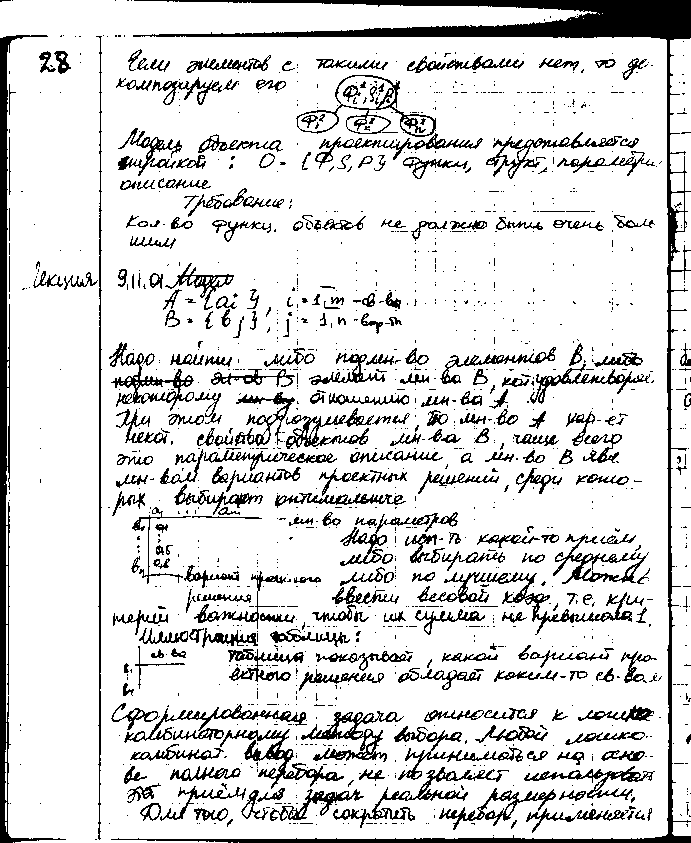 28
Если элементов с такими свойствами нет, то де-
композируем его
Модель объекта проектирования представляется
тройкой : O = {Ф, S, P} функц, структ, параметри
описание
Требование:
Кол-во функц. объектов не должно быть очень боль
шим
Лекция 9.11.01 Модел
A = {ai}, i = 1,m - св-ва
B = {bj}, j = 1,n - вар-т
Надо найти либо подмн-во элементов B, либо
подмн-во эл-ов B элемент мн-ва B, кот удовлетворяет
некоторому мн-ву отношению мн-ва A
При этом подразумевается, что мн-во A хар-ет
некот. свойства объектов мн-ва B, чаще всего
это параметрическое описание, а мн-во B явл
мн-вом вариантов проектных решений, среди кото-
рых выбирают оптимальные
a1 ... am - мн-во параметров
b1 0,1
Надо исп-ть какой-то приём
0,5
либо выбирать по среднему
bn 0,8
вариант проектного либо по лучшему. Можно
решения ввести весовой коэф, т.е. кри-
терий важности, чтобы их сумма не превышала 1.
Иллюстрация таблицы:
св-ва таблица показывает, какой вариант про-
ектного решения обладает каким-то св-вом
Сформированная задача относится к
комбинаторному методу выбора. Любой
комбинат. может приниматься на осно-
ве полного перебора, не позволяет использовать
эти приём для задач реальной размерности.
Для того, чтобы сократить перебор, применяется